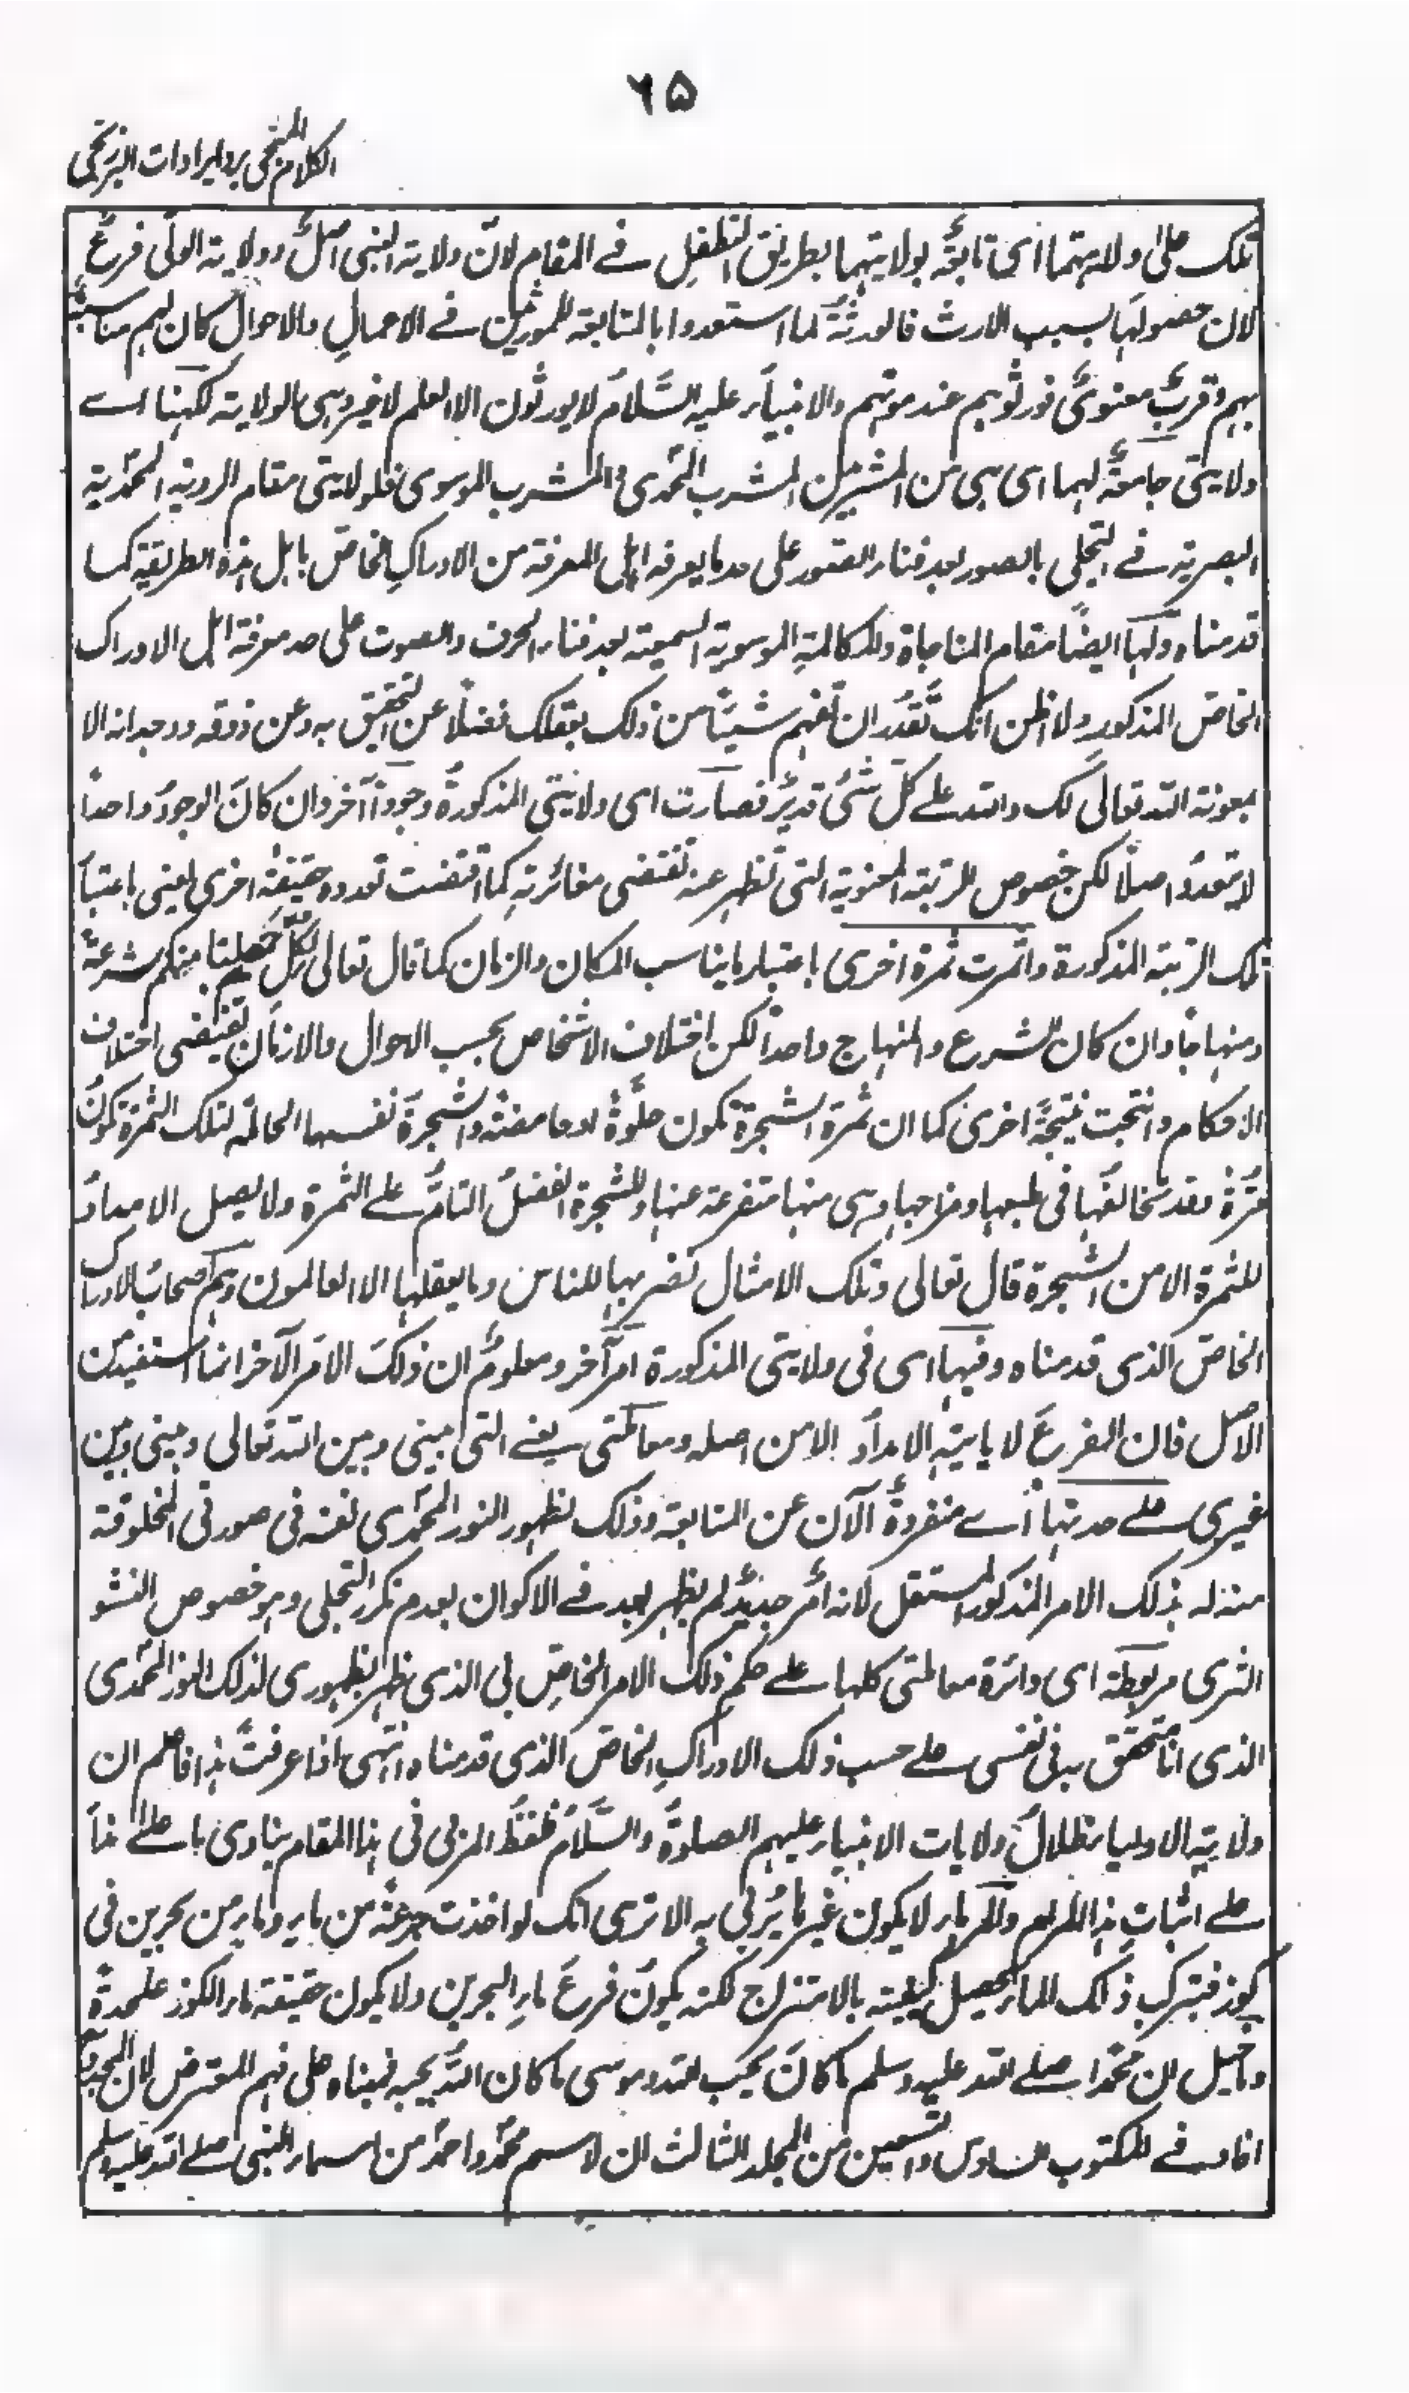 ٦٥
الكلام المنجي برد ايرادات البرزنجي
تلك على ولايتهما اى تابعةٌ بولايتهما بطريق التطفل فے المقام لانّ ولاية النبى اصلٌ وولاية الولى فرعٌ
لان حصولها بسبب الارث فالورثةُ لما استعدوا بالمتابعة للمورثين فے الاعمال والاحوال كان لهم مناسبةٌ
بهم وقربٌ معنوىٌ فورثوهم عند موتهم والانبياء عليهم السَّلامُ لا يورثون الا العلم لا غير وهى الولاية لكنها اے
ولايتى جامعةٌ لهما اى هى من المشربين المشرب المحمّدى والمشرب الموسوى فلولايتى مقام الروية المحمّدية
البصرية فے التجلى بالصور بعد فناء الصور على حد ما يعرفه اهل المعرفة من الادراك الخاصّ باهل هذه الطريقة كما
قدمناه ولها ايضًا مقام المناجاة والمكالمة الموسوية السمعية بعد فناء الحرف والصوت على حد معرفة اهل الادراك
الخاصّ المذكور ولا اظن انك تقدر ان تفهم شيئًا من ذلك بعقلك فضلًا عن التحقيق به وعن ذوقه ووجدانه الا
بمعونة الله تعالى لك والله علے كلّ شئ قديرٌ فصارت اى ولايتى المذكورةُ وجودًا آخر وان كانَ الوجودُ واحدًا
لا يتعدد اصلًا لكن خصوص المرتبة المعنوية التى تظهر عنه تقتضى مغائرته كما اقتضت تعدده حقيقة اخرى يعنى باعتبار
تلك الرتبة المذكورة واثمرت ثمرة اخرى باعتبار ما يناسب المكان والزمان كما قال تعالى لكلٍّ جعلنا منكم شرعةً
ومنهاجًا وان كان الشرع والمنهاج واحدًا لكن اختلاف الاشخاص بحسب الاحوال والازمان يقتضى اختلاف
الاحكام وانتجت نتيجةً اخرى كما ان ثمرة الشجرة تكون حلوةً او حامضةً والشجرة نفسها الحاملة لتلك الثمرة تكون
مُرّةً وقد تخالفُها فى طبعها ومزاجها وهى منها متفرعة عنها وللشجرة الفضلُ التامُّ علے الثمرة ولا يصل الامدادُ
للثمرة الا من الشجرة قال تعالى وتلك الامثال نضربها للناس وما يعقلها الا العالمون وهم اصحابُ الادراك
الخاصّ الذى قدمناه وفيها اى فى ولايتى المذكورة امرٌ آخر ومعلومٌ ان ذلكَ الامرَ الآخر انما استفيد من
الاصل فان الفرعَ لا ياتيه الامدادُ الا من اصله ومعاملتى يعنے التى بينى وبين الله تعالى وبينى وبين
غيرى علے حدتها اے منفردةٌ الآن عن المتابعة وذلك لظهور النور المحمّدى نفسه فى صورتى المخلوقة
منه له بذلك الامر المذكور المستقل لانه امرٌ جديدٌ لم يظهر بعد فے الاكوان بعدم تكرر التجلى وهو خصوص النشو
الثرى مربوطة اى دائرة معاملتى كلها علے حكم ذلك الامر الخاصّ بى الذى ظهر بظهورى لذلك النور المحمّدى
الذى انا متحقق به فى نفسى علے حسب ذلك الادراك الخاصّ الذى قدمناه انتهى اذا عرفت هذا فاعلم ان
ولاية الاولياء ظلالُ ولايات الانبياء عليهم الصلوةُ والسَّلامُ فلفظُ المربى فى هذا المقام ينادى باعلے نداءً
علے اثبات هذا المرام والمربا لا يكون غير ما يُربّى به الا ترى انك لو اخذت جرعةً من ماء وماء من بحرين فى
كوز فبتركب ذلك الماء يحصل كيفيته بالامتزاج لكنه يكونُ فرعَ ماءِ البحرين ولا يكون حقيقة ماء الكوز علٰحدةً
وما قيل ان محمّدًا صلے الله عليه وسلم ما كانَ يحبّ الله وموسى ما كان اللهُ يحبه فمبناه على فهم المعترض لان المجدّد
افاد فے المكتوب السادس والتسعين من المجلد الثالث ان لاسم محمّد واحمد من اسماء النبى صلے الله عليه وسلم